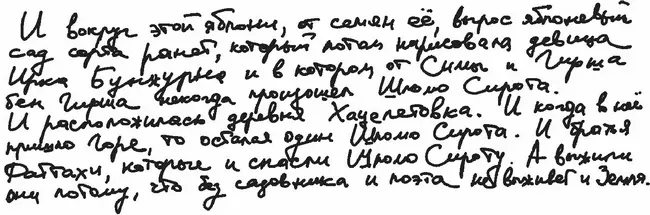 И вокруг этой яблони, от семян её, вырос яблоневый
сад сорта ранет, который потом нарисовала девица
Ирка Бунжурна и в котором от Симы и Гирша
бен Гирша некогда произошел Шломо Сирота.
И расположилась деревня Хацелетовка. И когда в неё
пришло Горе, то остался один Шломо Сирота. И братья
Фаттахи, которые и спасли Шломо Сироту. А выжили
они потому, что без садовника и поэта не выживет и Земля.